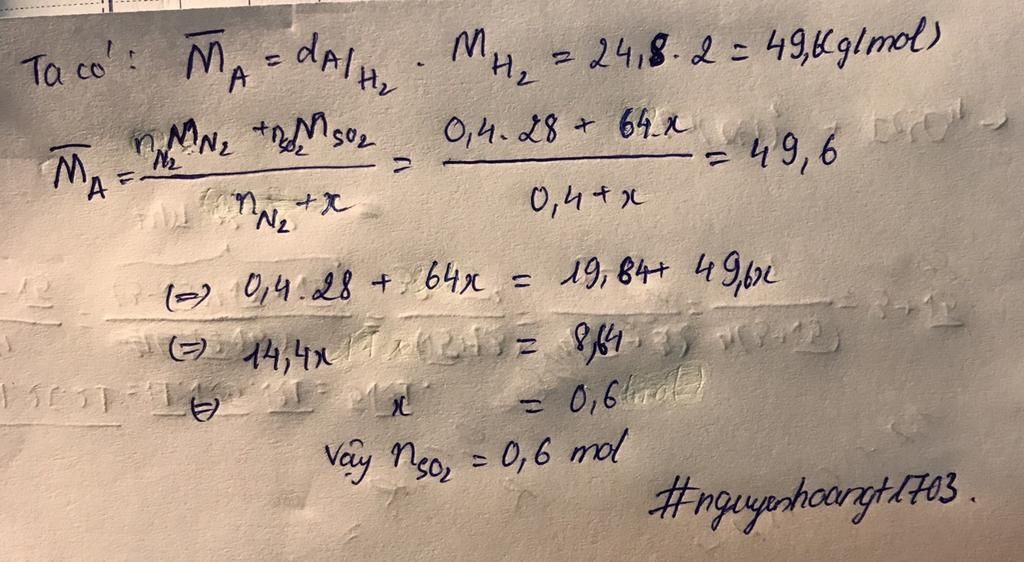 Ta có: M̅_A = d_A/H₂ . M_H₂ = 24,8 . 2 = 49,6(g/mol)
M̅_A = (n_N₂ M_N₂ + n_SO₂ M_SO₂) / (n_N₂ + x) = (0,4 . 28 + 64.x) / (0,4 + x) = 49,6
(=) 0,4 . 28 + 64x = 19,84 + 49,6x
(=) 14,4x = 8,64
(=) x = 0,6
Vậy n_SO₂ = 0,6 mol
#nguyenhoangt1703.